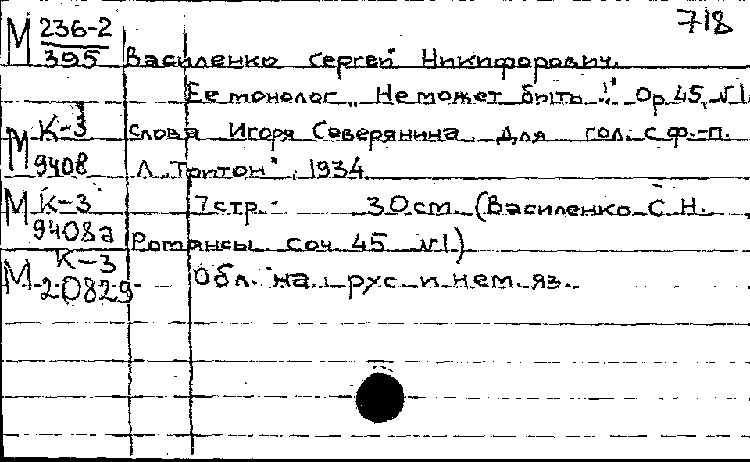 718
М 236-2
395 Василенко Сергей Никифорович.
Ее монолог „Не может быть..!" Ор. 45, №1.
М К-3 Слова Игоря Северянина. Для гол. с ф.-п.
9408 Л. „Тритон", 1934.
М К-3 7 стр. 30 см. (Василенко С. Н.
9408а Романсы. Соч. 45 №1.)
М К-3
20829 Обл. на рус и нем. яз.